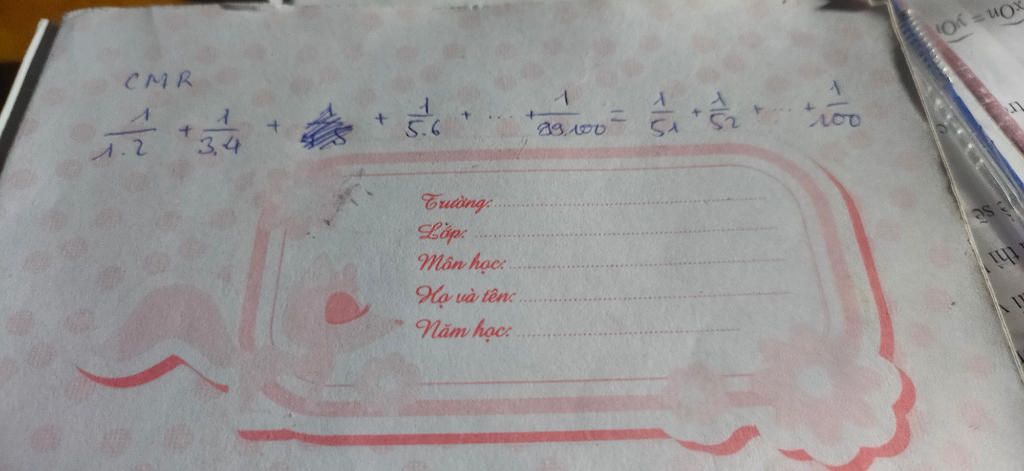 CMR
1/1.2 + 1/3.4 + + 1/5.6 + ... + 1/99.100 = 1/51 + 1/52 + ... + 1/100
Trường:
Lớp:
Môn học:
Họ và tên:
Năm học: